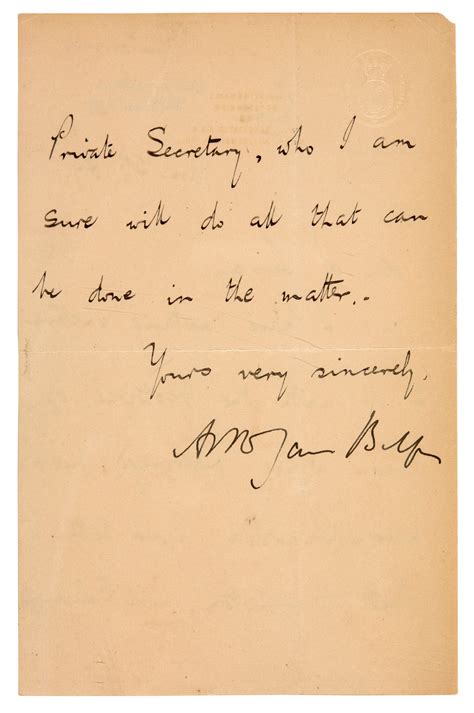 Private Secretary, who I am
sure will do all that can
be done in the matter..
Yours very sincerely,
James Balfour